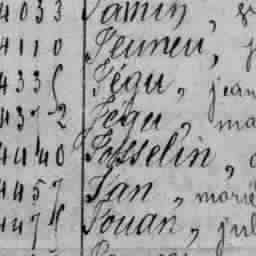 4033 Jamin,
4110 Jeuneu,
4335 Jégu, jean
4372 Jégu, ma
4440 Josselin,
4457 Jan, marie
4475 Jouan, jul